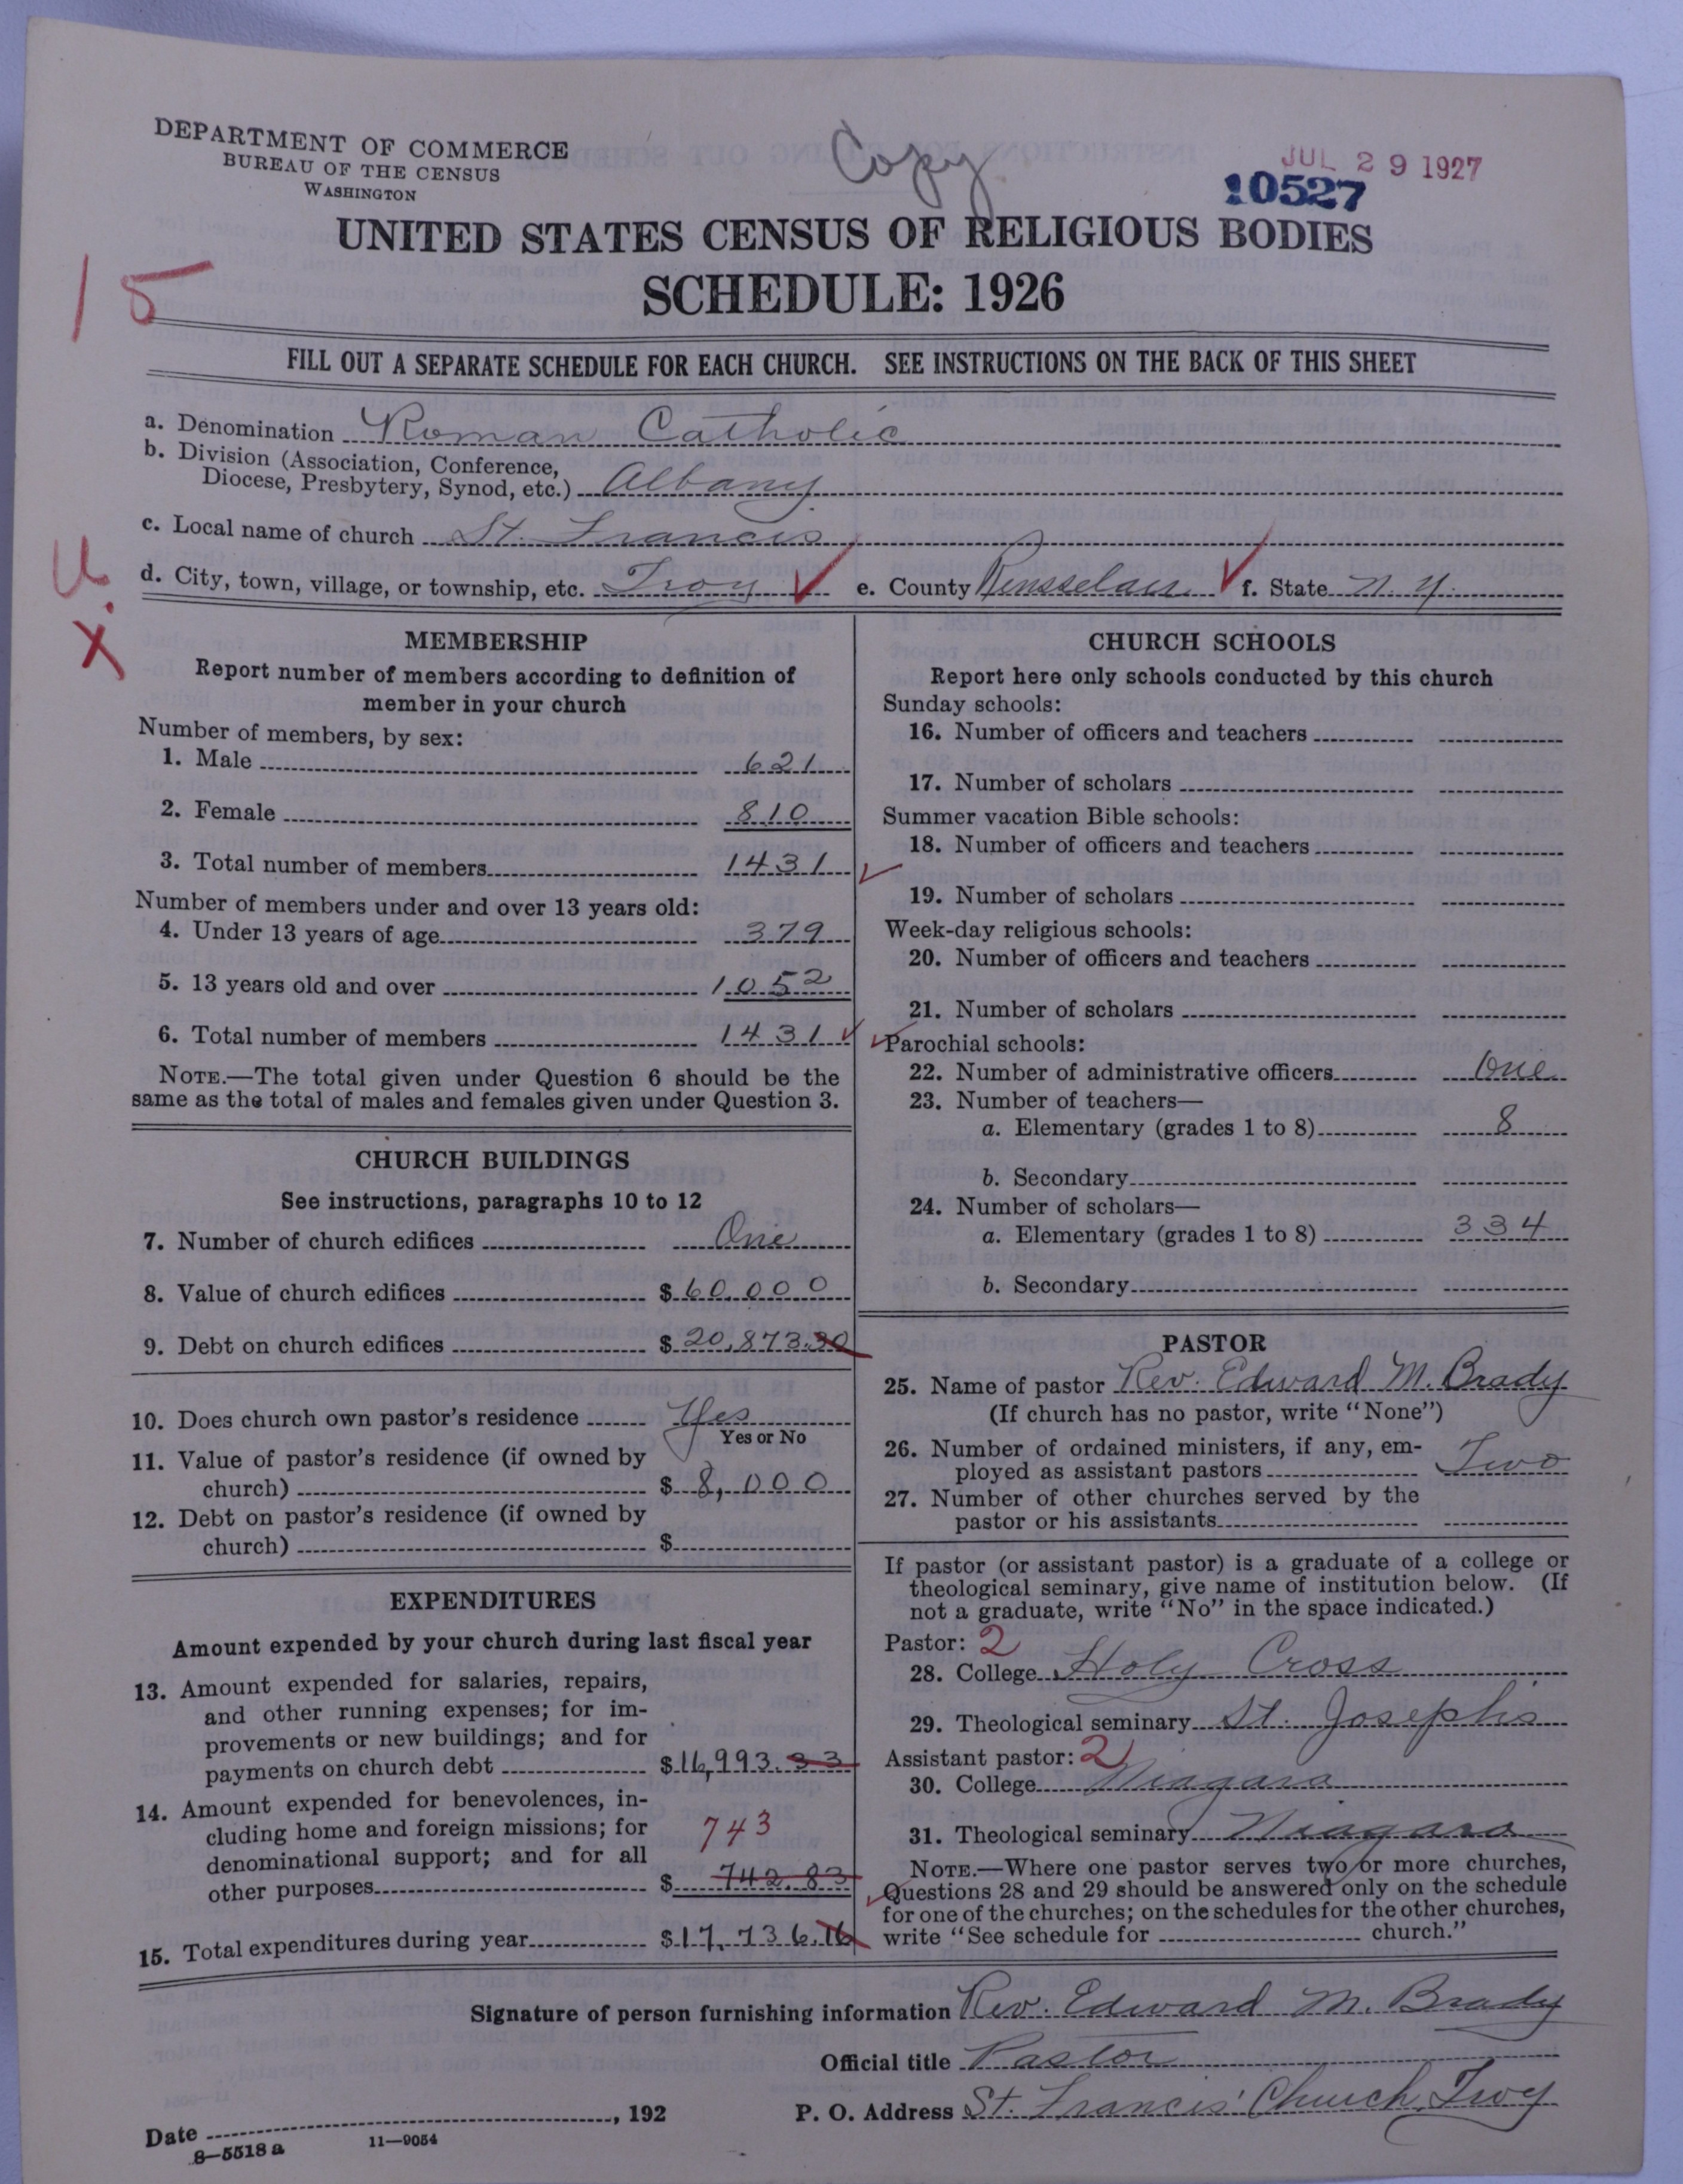 DEPARTMENT OF COMMERCE
BUREAU OF THE CENSUS
WASHINGTON
Copy
JUL 29 1927
10527
UNITED STATES CENSUS OF RELIGIOUS BODIES
SCHEDULE: 1926
15
FILL OUT A SEPARATE SCHEDULE FOR EACH CHURCH. SEE INSTRUCTIONS ON THE BACK OF THIS SHEET
a. Denomination Roman Catholic
b. Division (Association, Conference,
Diocese, Presbytery, Synod, etc.) Albany
c. Local name of church St. Francis
d. City, town, village, or township, etc. Troy ✓ e. County Rensselaer ✓ f. State N. Y.
U
X
MEMBERSHIP
Report number of members according to definition of
member in your church
Number of members, by sex:
1. Male 621
2. Female 810
3. Total number of members 1431 ✓
Number of members under and over 13 years old:
4. Under 13 years of age 379
5. 13 years old and over 1052
6. Total number of members 1431 ✓
NOTE.—The total given under Question 6 should be the
same as the total of males and females given under Question 3.
CHURCH BUILDINGS
See instructions, paragraphs 10 to 12
7. Number of church edifices One
8. Value of church edifices $ 60,000
9. Debt on church edifices $ 20,873.30
10. Does church own pastor's residence Yes
Yes or No
11. Value of pastor's residence (if owned by
church) $ 8,000
12. Debt on pastor's residence (if owned by
church) $
EXPENDITURES
Amount expended by your church during last fiscal year
13. Amount expended for salaries, repairs,
and other running expenses; for im-
provements or new buildings; and for
payments on church debt $16,993.33
14. Amount expended for benevolences, in-
cluding home and foreign missions; for
denominational support; and for all
other purposes $ 742.83
743
15. Total expenditures during year $17,736.16
CHURCH SCHOOLS
Report here only schools conducted by this church
Sunday schools:
16. Number of officers and teachers
17. Number of scholars
Summer vacation Bible schools:
18. Number of officers and teachers
19. Number of scholars
Week-day religious schools:
20. Number of officers and teachers
21. Number of scholars
✓ Parochial schools:
22. Number of administrative officers One
23. Number of teachers—
a. Elementary (grades 1 to 8) 8
b. Secondary
24. Number of scholars—
a. Elementary (grades 1 to 8) 334
b. Secondary
PASTOR
25. Name of pastor Rev. Edward M. Brady
(If church has no pastor, write "None")
26. Number of ordained ministers, if any, em-
ployed as assistant pastors Two
27. Number of other churches served by the
pastor or his assistants
If pastor (or assistant pastor) is a graduate of a college or
theological seminary, give name of institution below. (If
not a graduate, write "No" in the space indicated.)
Pastor: 2
28. College Holy Cross
29. Theological seminary St. Josephs
Assistant pastor: 2
30. College Niagara
31. Theological seminary Niagara
NOTE.—Where one pastor serves two or more churches,
Questions 28 and 29 should be answered only on the schedule
for one of the churches; on the schedules for the other churches,
write "See schedule for church."
Signature of person furnishing information Rev. Edward M. Brady
Official title Pastor
P. O. Address St. Francis' Church, Troy
Date , 192
8—5518 a 11—9054